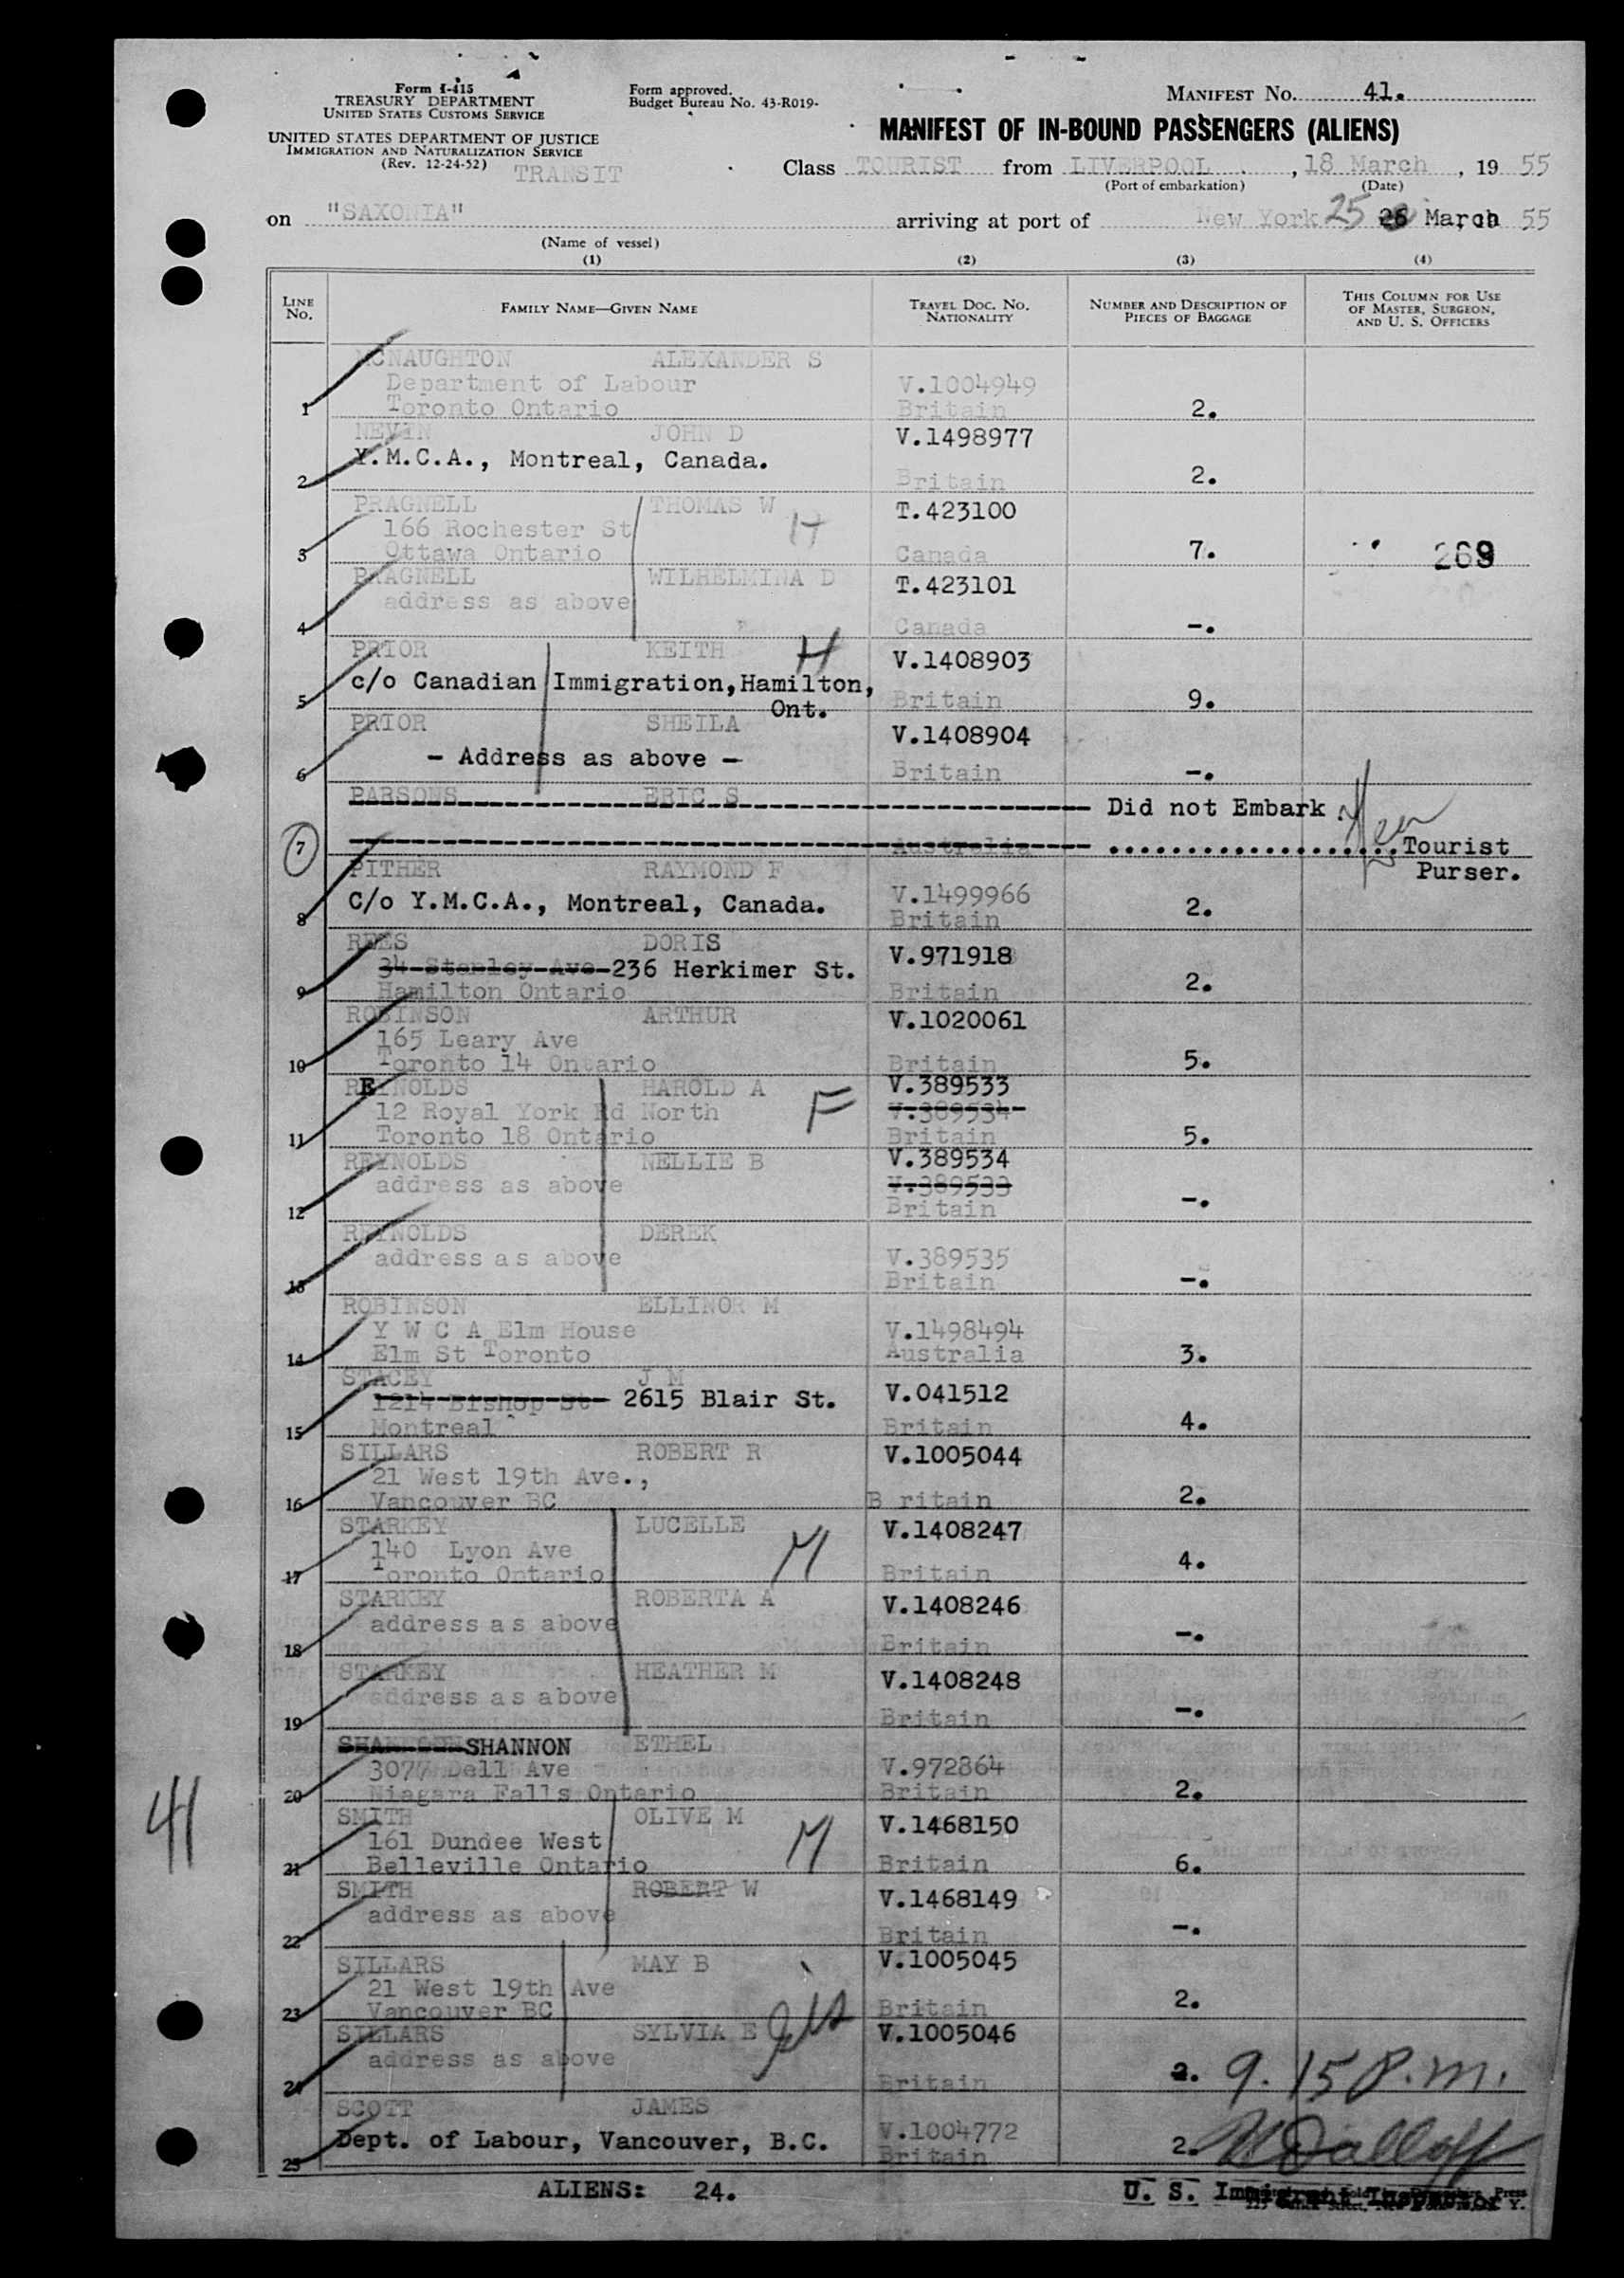 Form I-415
TREASURY DEPARTMENT
UNITED STATES CUSTOMS SERVICE
UNITED STATES DEPARTMENT OF JUSTICE
IMMIGRATION AND NATURALIZATION SERVICE
(Rev. 12-24-52)
TRANSIT
Form approved.
Budget Bureau No. 43-R019-
MANIFEST No. 41.
MANIFEST OF IN-BOUND PASSENGERS (ALIENS)
Class TOURIST from LIVERPOOL, 18 March, 19 55
(Port of embarkation) (Date)
on "SAXONIA" arriving at port of New York 25 March 55
(Name of vessel)
(1) (2) (3) (4)
LINE No. FAMILY NAME—GIVEN NAME TRAVEL DOC. NO. NATIONALITY NUMBER AND DESCRIPTION OF PIECES OF BAGGAGE THIS COLUMN FOR USE OF MASTER, SURGEON, AND U. S. OFFICERS
MCNAUGHTON ALEXANDER S
Department of Labour V.1004949
1 Toronto Ontario Britain 2.
NEVIN JOHN D V.1498977
Y.M.C.A., Montreal, Canada.
2 Britain 2.
PRAGNELL THOMAS W T.423100
166 Rochester St H
3 Ottawa Ontario Canada 7. 269
PRAGNELL WILHELMINA D T.423101
address as above
4 Canada -.
PRIOR KEITH H V.1408903
c/o Canadian Immigration, Hamilton,
5 Ont. Britain 9.
PRIOR SHEILA V.1408904
- Address as above -
6 Britain -.
PARSONS ERIC S Did not Embark
7 Australia Tourist
Purser.
PITHER RAYMOND F
C/o Y.M.C.A., Montreal, Canada. V.1499966
8 Britain 2.
REES DORIS V.971918
34 Stanley Ave 236 Herkimer St.
9 Hamilton Ontario Britain 2.
ROBINSON ARTHUR V.1020061
165 Leary Ave
10 Toronto 14 Ontario Britain 5.
REYNOLDS HAROLD A V.389533
12 Royal York Rd North F V.389534
11 Toronto 18 Ontario Britain 5.
REYNOLDS NELLIE B V.389534
address as above V.389533
12 Britain -.
REYNOLDS DEREK
address as above V.389535
13 Britain -.
ROBINSON ELLINOR M
Y W C A Elm House V.1498494
14 Elm St Toronto Australia 3.
STACEY J M
1214 Bishop St 2615 Blair St. V.041512
15 Montreal Britain 4.
SILLARS ROBERT R V.1005044
21 West 19th Ave.,
16 Vancouver BC B ritain 2.
STARKEY LUCELLE V.1408247
140 Lyon Ave M
17 Toronto Ontario Britain 4.
STARKEY ROBERTA A V.1408246
address as above
18 Britain -.
STARKEY HEATHER M V.1408248
address as above
19 Britain -.
SHANNON ETHEL
3077 Dell Ave V.972864
20 Niagara Falls Ontario Britain 2.
SMITH OLIVE M V.1468150
161 Dundee West M
21 Belleville Ontario Britain 6.
SMITH ROBERT W V.1468149
address as above
22 Britain -.
SILLARS MAY B V.1005045
21 West 19th Ave
23 Vancouver BC Britain 2.
SILLARS SYLVIA E V.1005046
address as above
24 Britain 2. 9.15 P.m.
SCOTT JAMES
Dept. of Labour, Vancouver, B.C. V.1004772
25 Britain 2.
ALIENS: 24. U. S. Immigrant Inspector
41